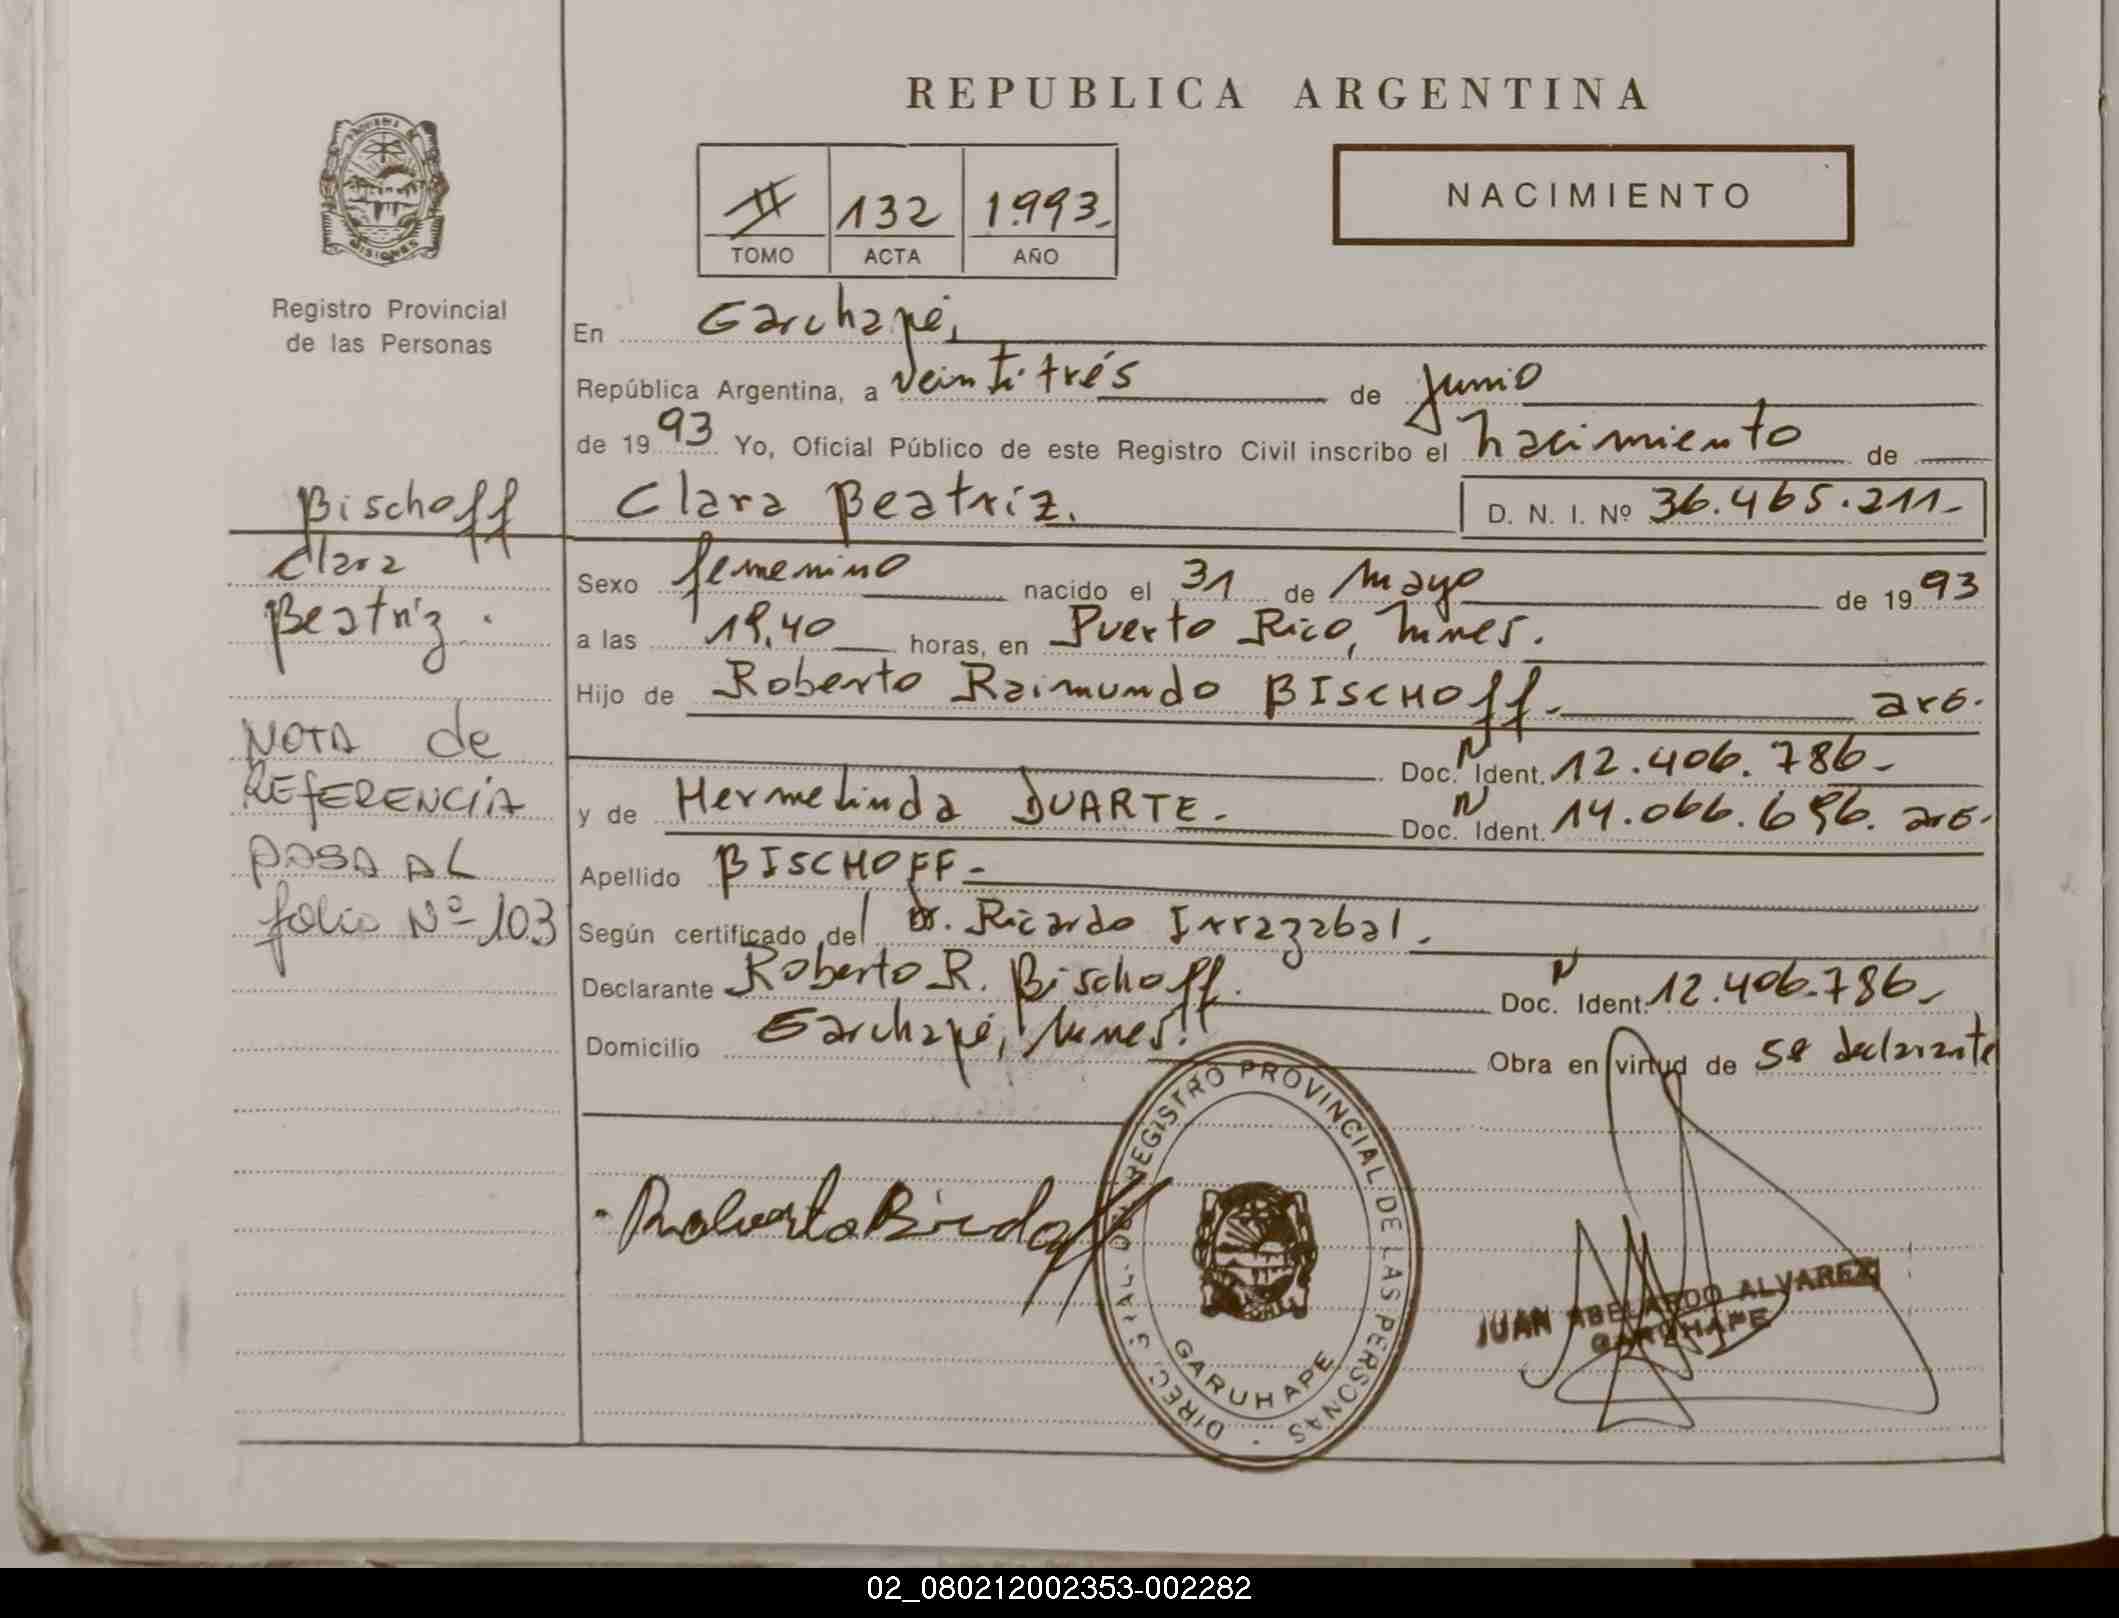 REPUBLICA ARGENTINA
NACIMIENTO
II 132 1.993.
TOMO ACTA AÑO
PROVINCIA DE
MISIONES
Registro Provincial
de las Personas
En Garuhapé,
República Argentina, a veintitrés de junio
de 1993 Yo, Oficial Público de este Registro Civil inscribo el nacimiento de
Clara Beatriz. D. N. I. Nº 36.465.211-
Sexo femenino nacido el 31 de mayo de 1993
a las 19,40 horas, en Puerto Rico, Mnes.
Hijo de Roberto Raimundo BISCHOFF. arg.
Doc. N Ident. 12.406.786-
y de Hermelinda DUARTE. Doc. N Ident. 14.066.696. arg.
Apellido BISCHOFF-
Según certificado del Dr. Ricardo Irrazabal.
Declarante Roberto R. Bischoff. Doc. N Ident. 12.406.786-
Domicilio Garuhapé, Mnes. Obra en virtud de ser declarante
Bischoff
Clara
Beatriz.
NOTA de
REFERENCIA
PASA AL
folio Nº 103
Roberto Bischoff
DIREC. GRAL. DEL REGISTRO PROVINCIAL DE LAS PERSONAS
GARUHAPE
JUAN ABELARDO ALVAREZ
GARUHAPE
02_080212002353-002282